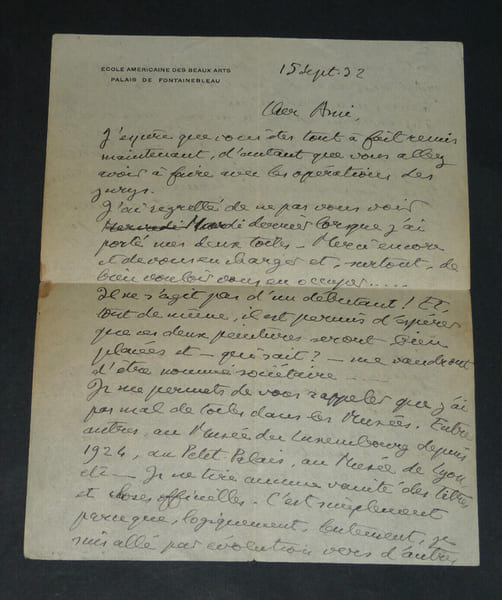 ECOLE AMERICAINE DES BEAUX ARTS
PALAIS DE FONTAINEBLEAU
15 Sept. 32
Cher Ami,
J'espère que vous êtes tout à fait remis
maintenant, d'autant que vous allez
avoir à faire avec les opérations des
jurys.
J'ai regretté de ne pas vous voir
Mardi dernier lorsque j'ai
porté mes deux toiles - Merci encore
et de vous en charger et, surtout, de
bien vouloir vous en occuper.....
Il ne s'agit pas d'un débutant ! Et,
tout de même, il est permis d'espérer
que ces deux peintures seront bien
placées et - qui sait ? - me vaudront
d'être nommé sociétaire ...
Je me permets de vous rappeler que j'ai
pas mal de toiles dans les Musées. Entre
autres, au Musée du Luxembourg depuis
1924, au Petit Palais, au Musée de Lyon
Je ne tire aucune vanité des titres
et choses officielles. C'est simplement
parceque, logiquement, lentement, je
suis allé par évolution vers d'autres